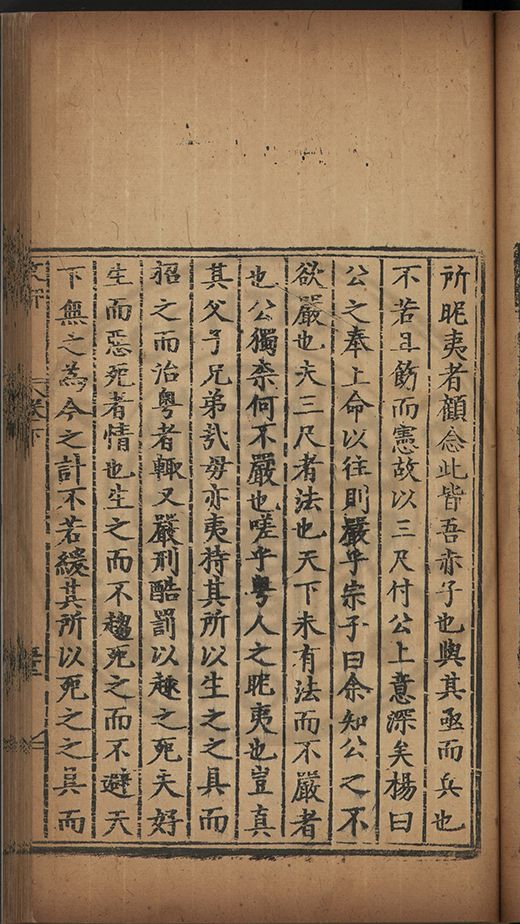 所昵夷者顧念此皆吾赤子也與其亟而兵也
不若且飭而憲故以三尺付公上意深矣楊曰
公之奉上命以往則嚴乎宗子曰余知公之不
欲嚴也夫三尺者法也天下未有法而不嚴者
也公獨柰何不嚴也嗟乎粤人之昵夷也豈真
其父子兄弟㢤毋亦夷持其所以生之之具而
招之而治粤者輙又嚴刑酷罰以趣之死夫好
生而惡死者情也生之而不趨死之而不避天
下無之為今之計不若緩其所以死之之具而